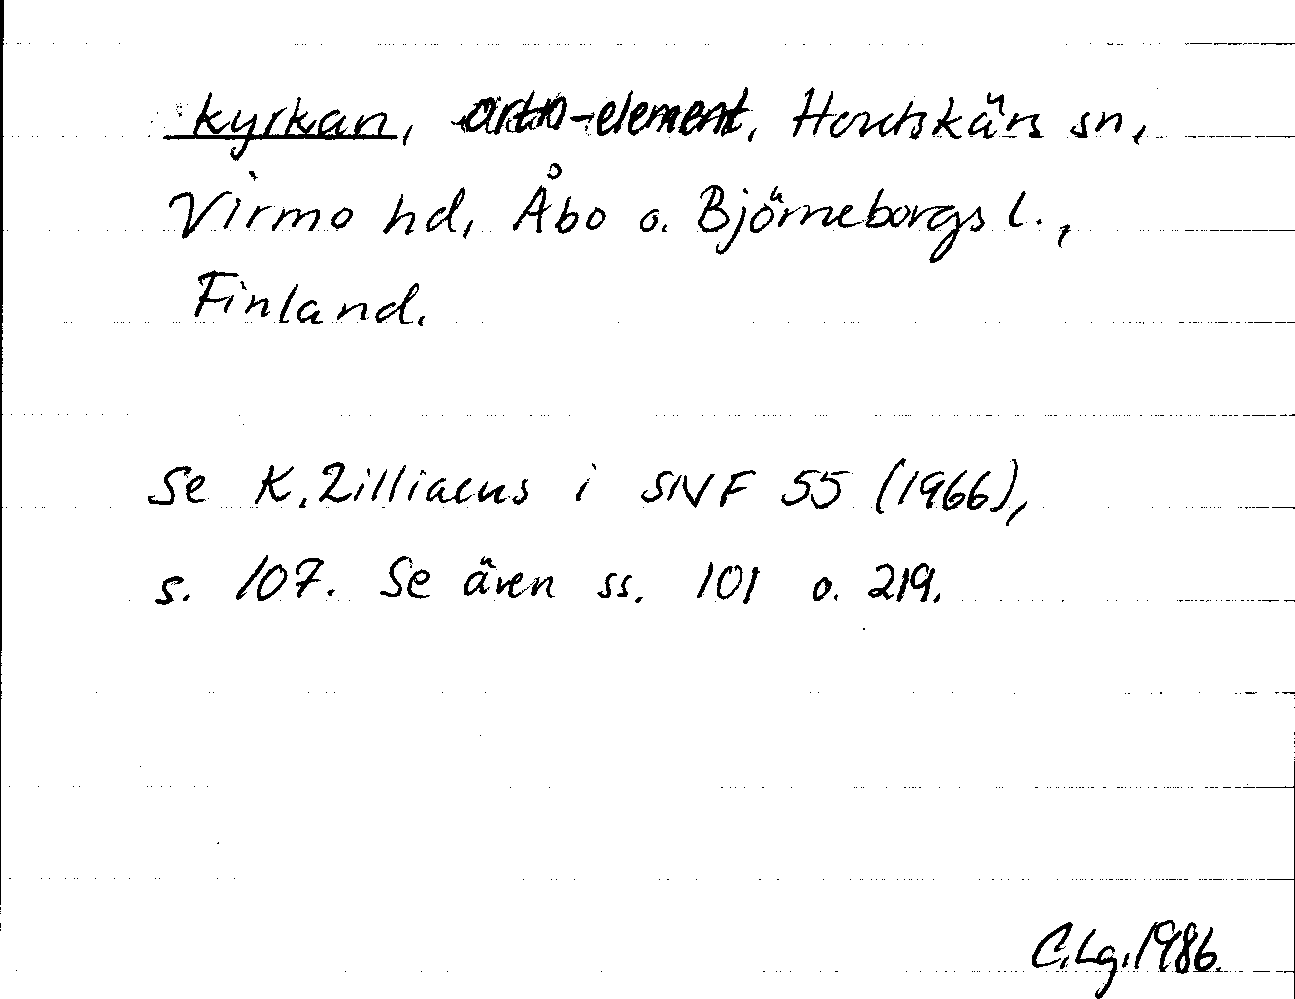 kyrkan, ortn-element, Houtskärs sn,
Virmo hd, Åbo o. Björneborgs l.,
Finland.
Se K. Zilliacus i SNF 55 (1966),
s. 107. Se även ss. 101 o. 219.
C.Lg. 1986.